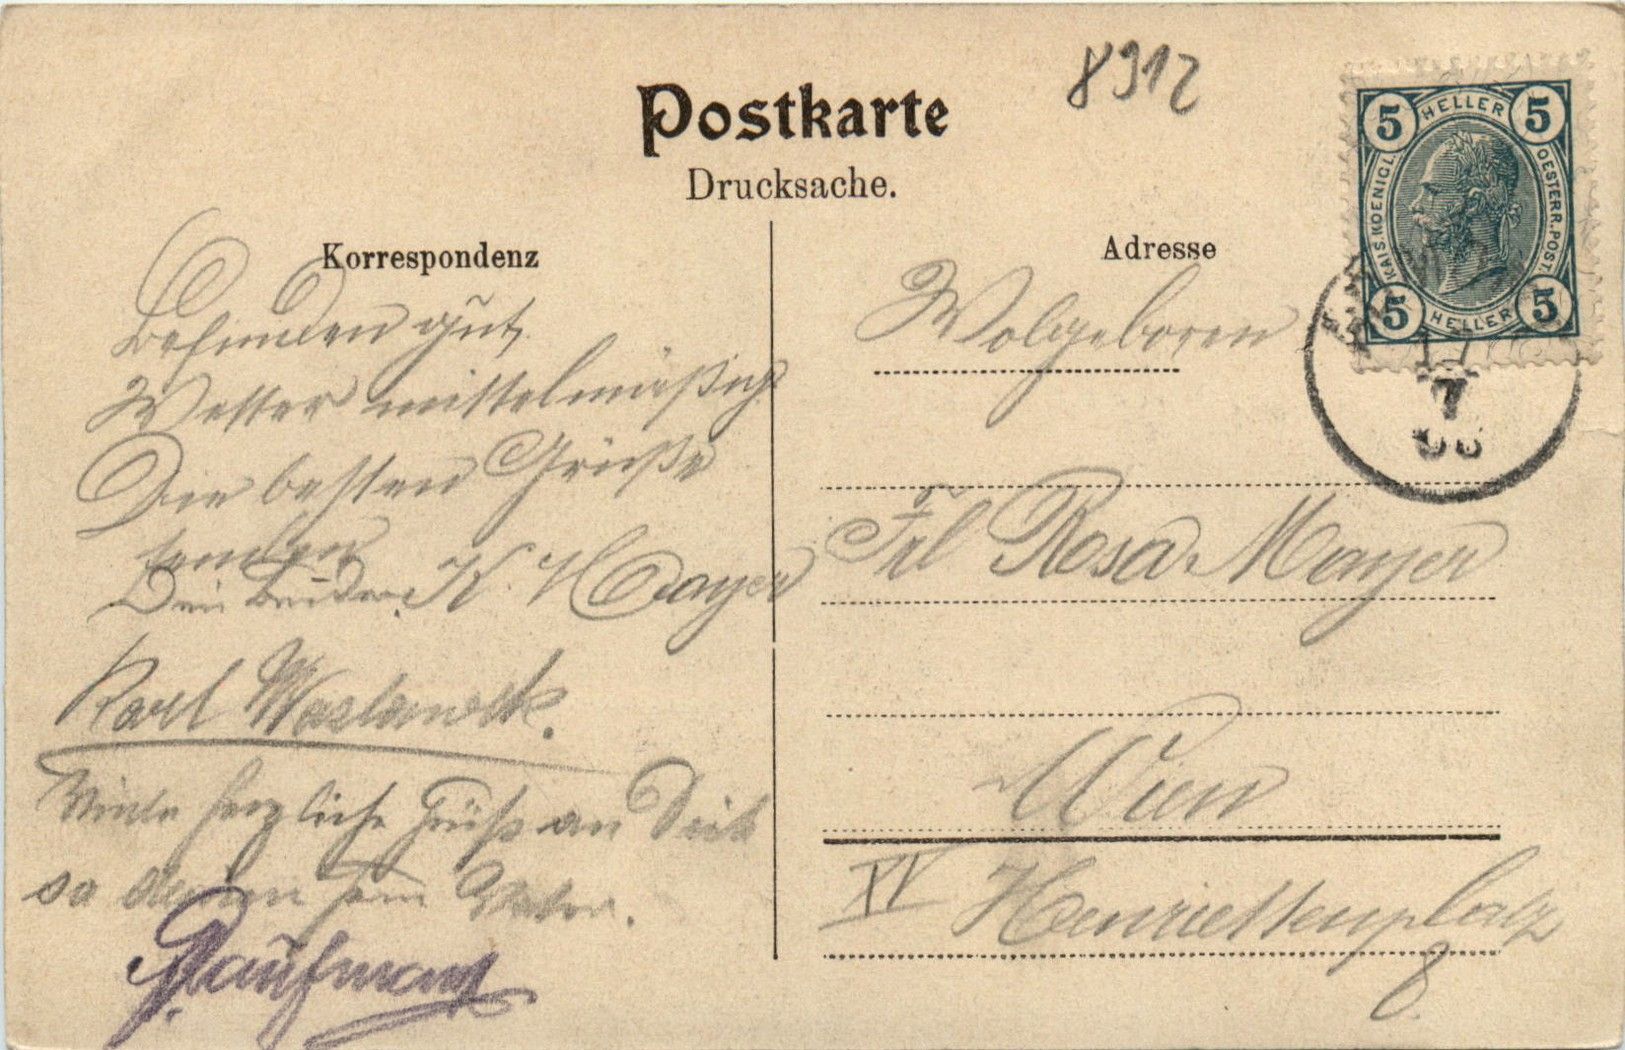 8912
Postkarte
Drucksache.
Korrespondenz
Befinden gut
Wetter mittelmäßig
Die besten Grüße
senden
Dein Bruder K. Mayer
Karl
Viele herzliche Grüße an Dich
so
Kaufmann
Adresse
Wolgeboren
Frl Rosa Mayer
Wien
XV Henriettenplatz
8
5 HELLER 5
KAIS. KOENIGL. OESTERR. POST.
5 HELLER 5
7